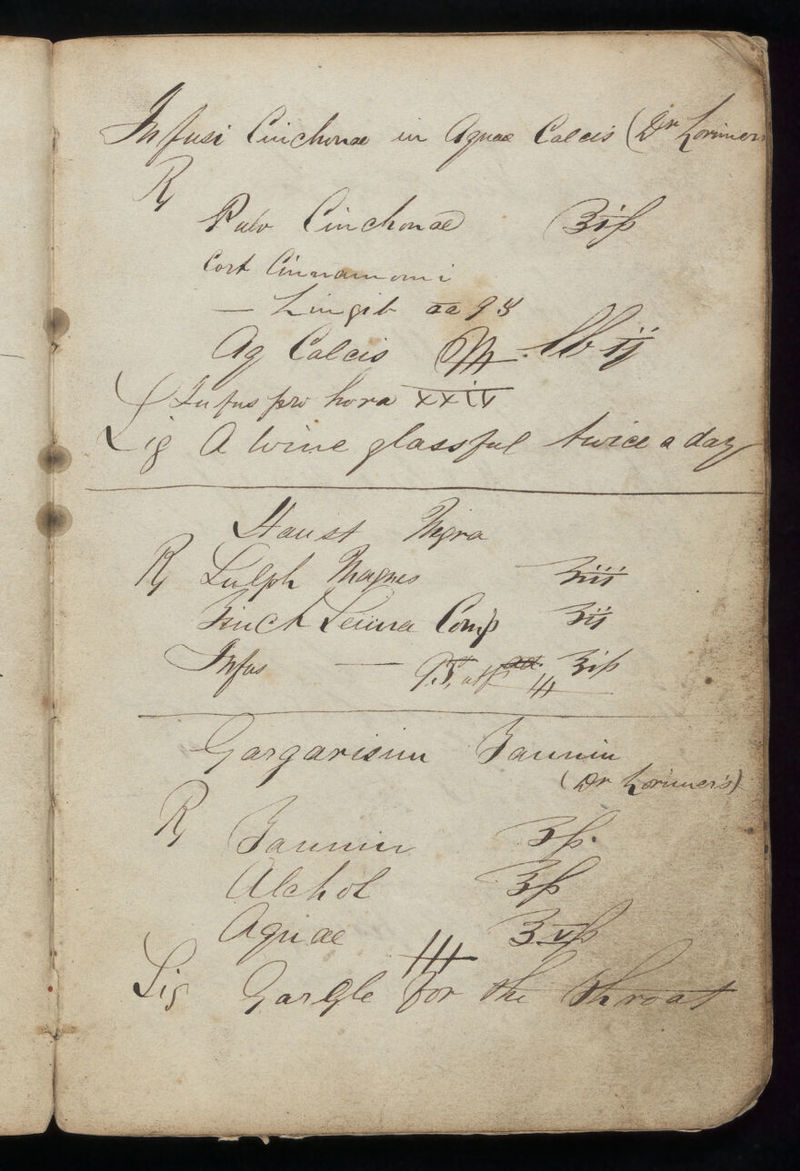 Infusi Cinchonae in Aquae Calcis (Dr Lorimers
℞
Pulv Cinchonae ℥iß
Cort Cinnamomi
— Zingib aa
Aq Calcis M lb ij
Infus pro hora xxiv
Sig A wine glassful twice a day
Haust Nigra
℞ Sulph Magnes ʒiii
Tinct Senna Comp ʒii
Infus — ℥iß
Gargarisim Tannin
(Dr Lorimer's)
℞
Tannin ʒß.
Alchol ℥ß
Aquae ℥vß
M
Sig Gargle for the Throat